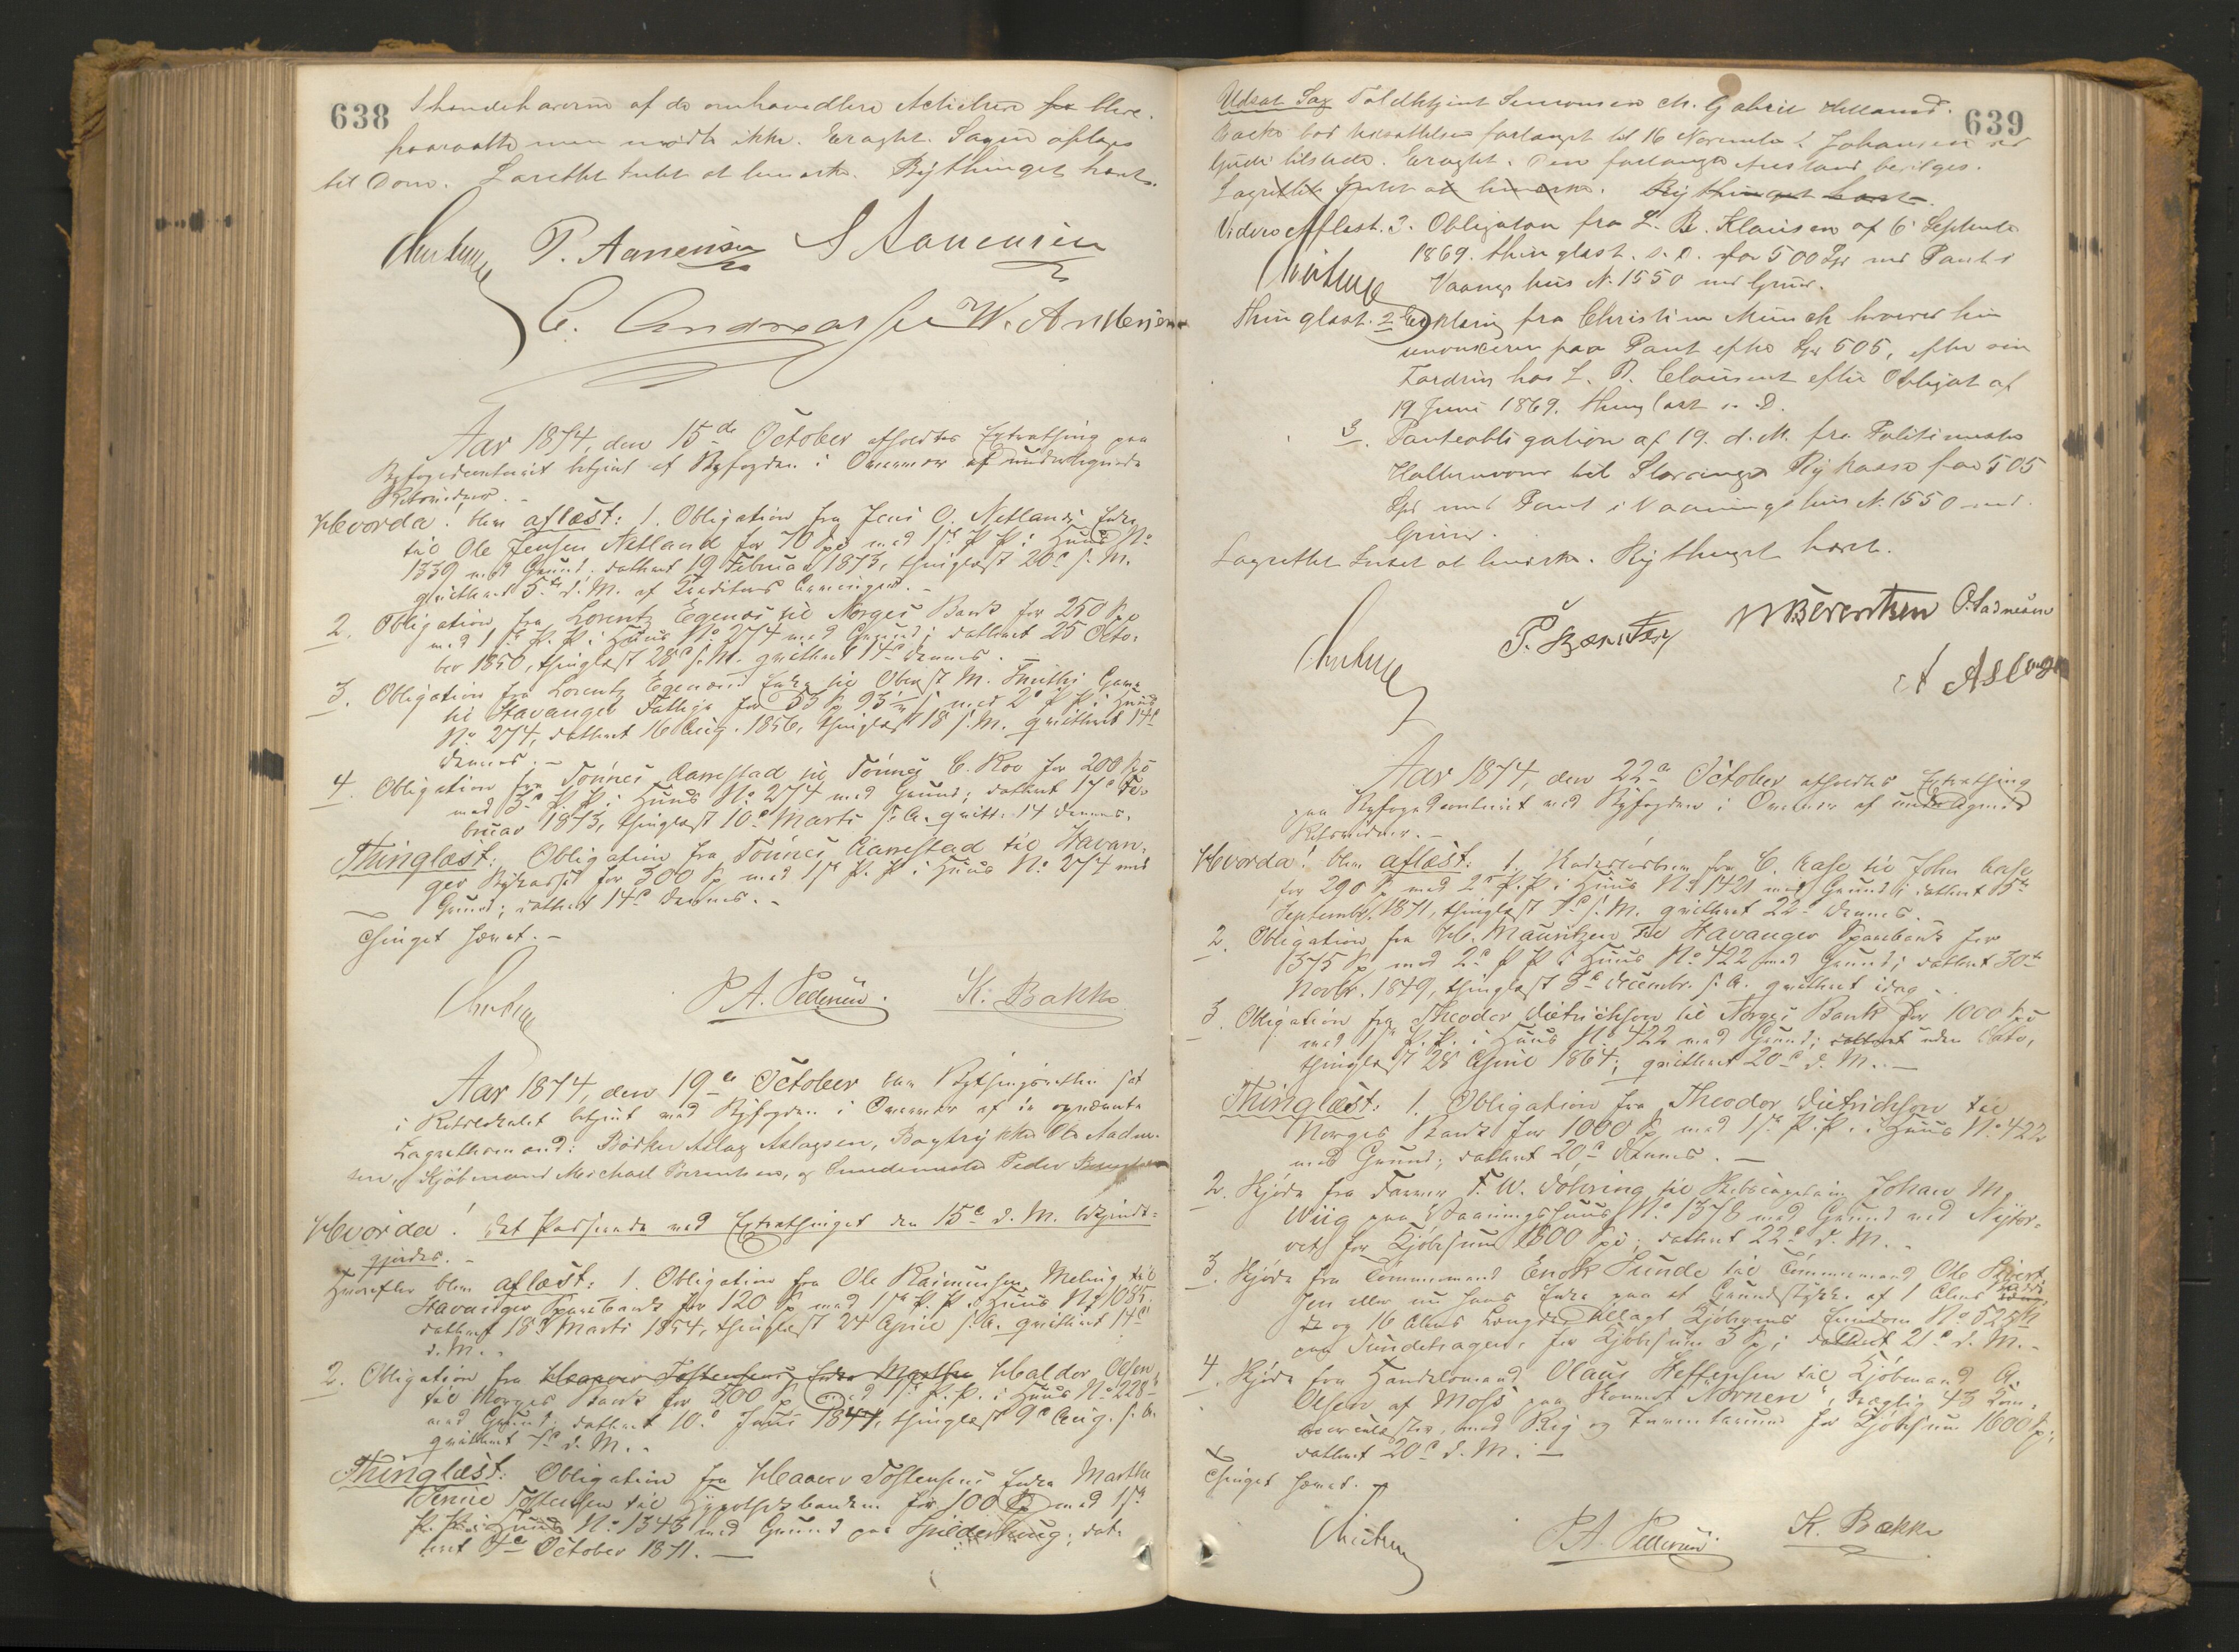 638
Ihændehaverne af de omhandlede Actietiere for blive
til Dom. Lavrettet Intet at bemærke. Bythinget hævet.
P. Aanensen S Aanensen
C. Andreassen W. Andersen
Aar 1874, den 15de October afholdtes Extrathing paa
Byfogedcontoiret betjent af Byfogden i Overvær af undertegnede
Retsvidner. -
Hvorda! blev aflæst: 1. Obligation fra Jens O. Netlands Enke
til Ole Jensen Netland for 70 Spd med 1ste P. Pr i Huus No
1339 med Grund. dateret 19 Februar 1873, thinglæst 20de s. M.
qvitteret 5te d. M. af Creditors
2. Obligation fra Lorentz Egenes til Norges Bank for 250 Sp.
med 1ste P. Pr. i Huus No 274 med Grund; dateret 25 Octo-
ber 1850, thinglæst 28de s. M. qvitteret 14de dennes. -
3. Obligation fra Lorentz Egenæs Enke til Obrist M. Smiths Gave
til Stavanger Fattige for 53 Sp 93 ß med 2de P. Pr i Huus
No 274, dateret 16 Aug. 1856, thinglæst 18 s. M. qvitteret 14de
dennes. -
4. Obligation fra Tönnes Aarrestad til Tönnes C. Roe for 200 Spd
med 3de P. Pr. i Huus No 274 med Grund; dateret 17de Fe-
bruar 1873, thinglæst 10de Marts s. A. qvitt. 14 dennes.
Thinglæst: Obligation fra Tönnes Aarrestad til Stavan-
ger Bykasse for 300 Sp med 1ste P. Pr i Huus No 274 med
Grund; dateret 14de dennes. -
Thinget hævet. -
P. A. Pedersen. K. Bakke
Aar 1874, den 19de October blev Bythingsretten sat
i Retslokalet betjent ved Byfogden i Overvær af de opnævnte
Lagrettesmænd: Bödker Aslag Aslagsen, Bogtrykker Ole Aadne-
sen, Kjöbmand Michael Berentsen, og Snedkermester Peder Berentsen
Hvorda! det Passerede ved Extrathinget den 15de d. M. bekjendt-
gjordes. -
Derefter blev aflæst: 1. Obligation fra Ole Rasmussen Meling til
Stavanger Sparebank for 120 Sp med 1ste P. Pr i Huus No 1085.
dateret 18de Marts 1854, thinglæst 24 April s. A. qvitteret 14de
d. M. -
2. Obligation fra Haaver Tostensens Enke Marthe Haldor Olsen
til Norges Bank for 300 Sp med 1ste P. Pr. i Huus No 228
med Grund; dateret 10de Juni 1847, thinglæst 9de Aug. s. A.
qvitteret 7de d. M. -
Thinglæst: Obligation fra Haaver Tostensens Enke Marthe
Serine Tostensen til Hypothekbanken for 100 Sp med 1ste
P. Pr i Huus No 1343 med Grund paa Spilderhaug; dat-
eret 7de October 1871. -
639
Udsat Sag Toldbetjent Simonsen ctr. Gabriel Helland.
Bakke bad Udsættelse forlanget til 16 November. Johansen var
tilstede. Eragtet. Den forlangte Anstand bevilges.
Lagrettet Intet at bemærke. Bythinget hævet.
Videre Afflæst. 3. Obligation fra L. B. Klausen af 6 September
1869. thinglæst. s. D. for 500 Spd med Pant i
Vaaningshus N. 1550 med Grund.
Thinglæst. 2 Erklæring fra Christine Munch hvorved hun
renoncerer paa Pant efter Spd 505, efter sin
Fordring hos L. B. Clausen efter Obligat af
19 Juni 1869. thinglæst s. D.
3. Panteobligation af 19. d. M. fra Politimester
til Stavanger Bykasse for 505
Spd med Pant i Vaaningshus N. 1550 med
Grund.
Lagrettet Intet at bemærke. Bythinget hævet.
P. Berentsen M Berentsen O. Aadnesen
A Aslagsen
Aar 1874, den 22de October afholdtes Extrathing
paa Byfogedcontoiret ved Byfogden i Overvær af undertegnede
Retsvidner. -
Hvorda! blev aflæst: 1. fra C. Aase til John Aase
for 290 Sp med 2den P. Pr i Huus No 1421 med Grund; dateret 5te
September 1871, thinglæst 7de s. M. qvitteret 22de dennes. -
2. Obligation fra H. Mauritzen til Stavanger Sparebank for
375 Sp med 2de P Pr i Huus No 422 med Grund; dateret 30te
Novbr. 1849, thinglæst 3de Decembr. s. A. qvitteret idag -
3. Obligation fra Theodor Dietrichson til Norges Bank for 1000 Spd
med 1ste P. Pr. i Huus No 422 med Grund; dateret uden Dato,
thinglæst 28 April 1864; qvitteret 20de d. M. -
Thinglæst: 1. Obligation fra Theodor Dietrichson til
Norges Bank for 1000 Sp med 1ste P. Pr. i Huus No 422
med Grund; dateret 20de dennes. -
2. Skjöde fra Farver F. W. Döhring til Skibscaptain Johan M.
Wiig paa Vaaningshuus No 1378 med Grund ved Nytor-
vet for Kjöbesum 1800 Spd; dateret 22de d. M. -
3. Skjöde fra Tömmermand Enok Sunde til Tömmermand Ole Sivert-
sen eller nu hans Enke paa et Grundstykke af 1 Alens Bredde
de og 16 Alens Længde tillagt Kjöberens Eiendom No 528
paa Sundehagen, for Kjöbesum 3 Sp; dateret 21de d. M. -
4. Skjöde fra Handelsmand Olaus Steffensen til Kjöbmand A.
Olsen af Moss paa Skonnert "Nornen", drægtig 43 Com-
mercelæster, med Rig og Inventarium for Kjöbesum 1600 Sp;
dateret 20de d. M. -
Thinget hævet. -
P A. Pedersen. K. Bakke